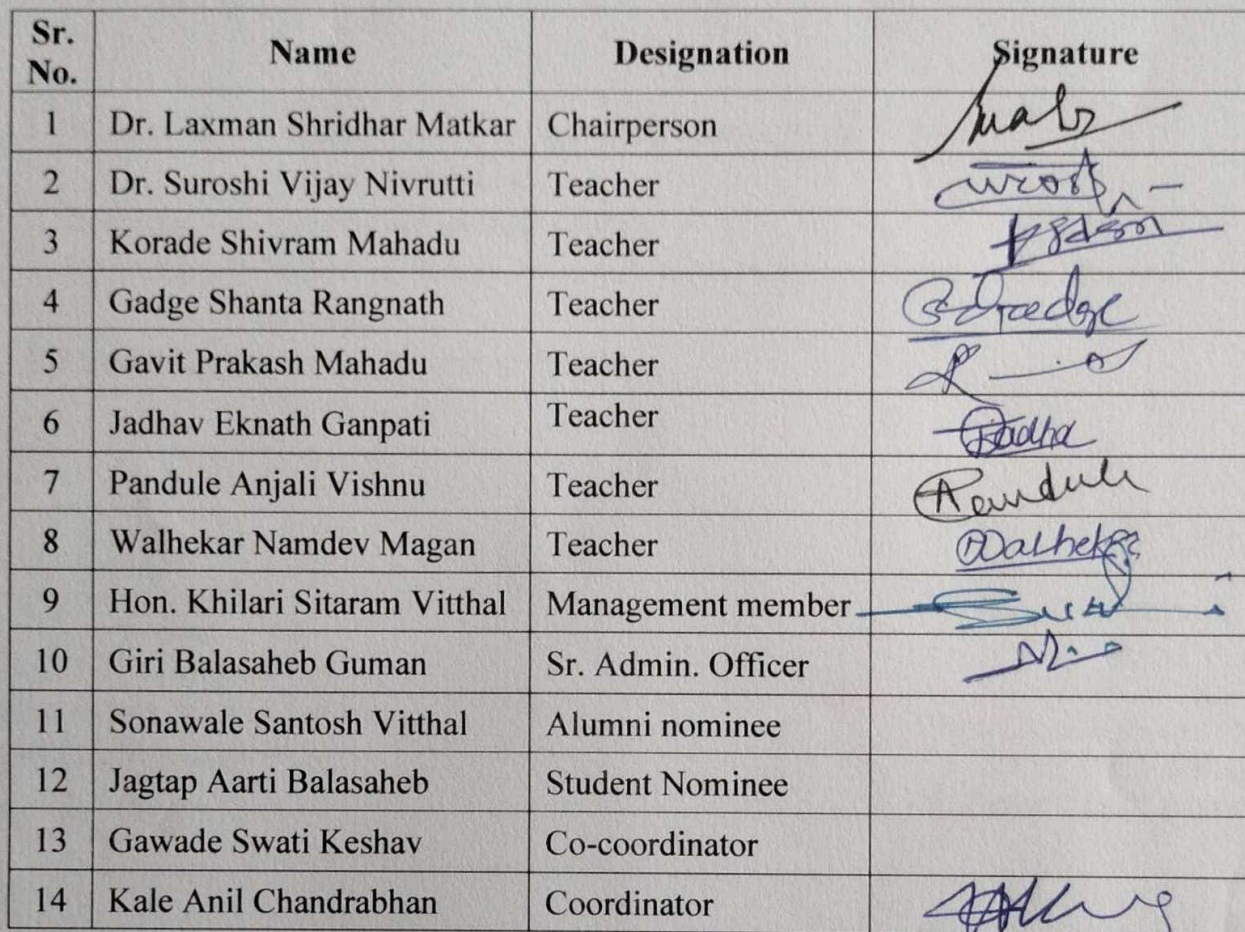 Sr. No. Name Designation Signature
1 Dr. Laxman Shridhar Matkar Chairperson
2 Dr. Suroshi Vijay Nivrutti Teacher
3 Korade Shivram Mahadu Teacher
4 Gadge Shanta Rangnath Teacher
5 Gavit Prakash Mahadu Teacher
6 Jadhav Eknath Ganpati Teacher
7 Pandule Anjali Vishnu Teacher
8 Walhekar Namdev Magan Teacher
9 Hon. Khilari Sitaram Vitthal Management member
10 Giri Balasaheb Guman Sr. Admin. Officer
11 Sonawale Santosh Vitthal Alumni nominee
12 Jagtap Aarti Balasaheb Student Nominee
13 Gawade Swati Keshav Co-coordinator
14 Kale Anil Chandrabhan Coordinator